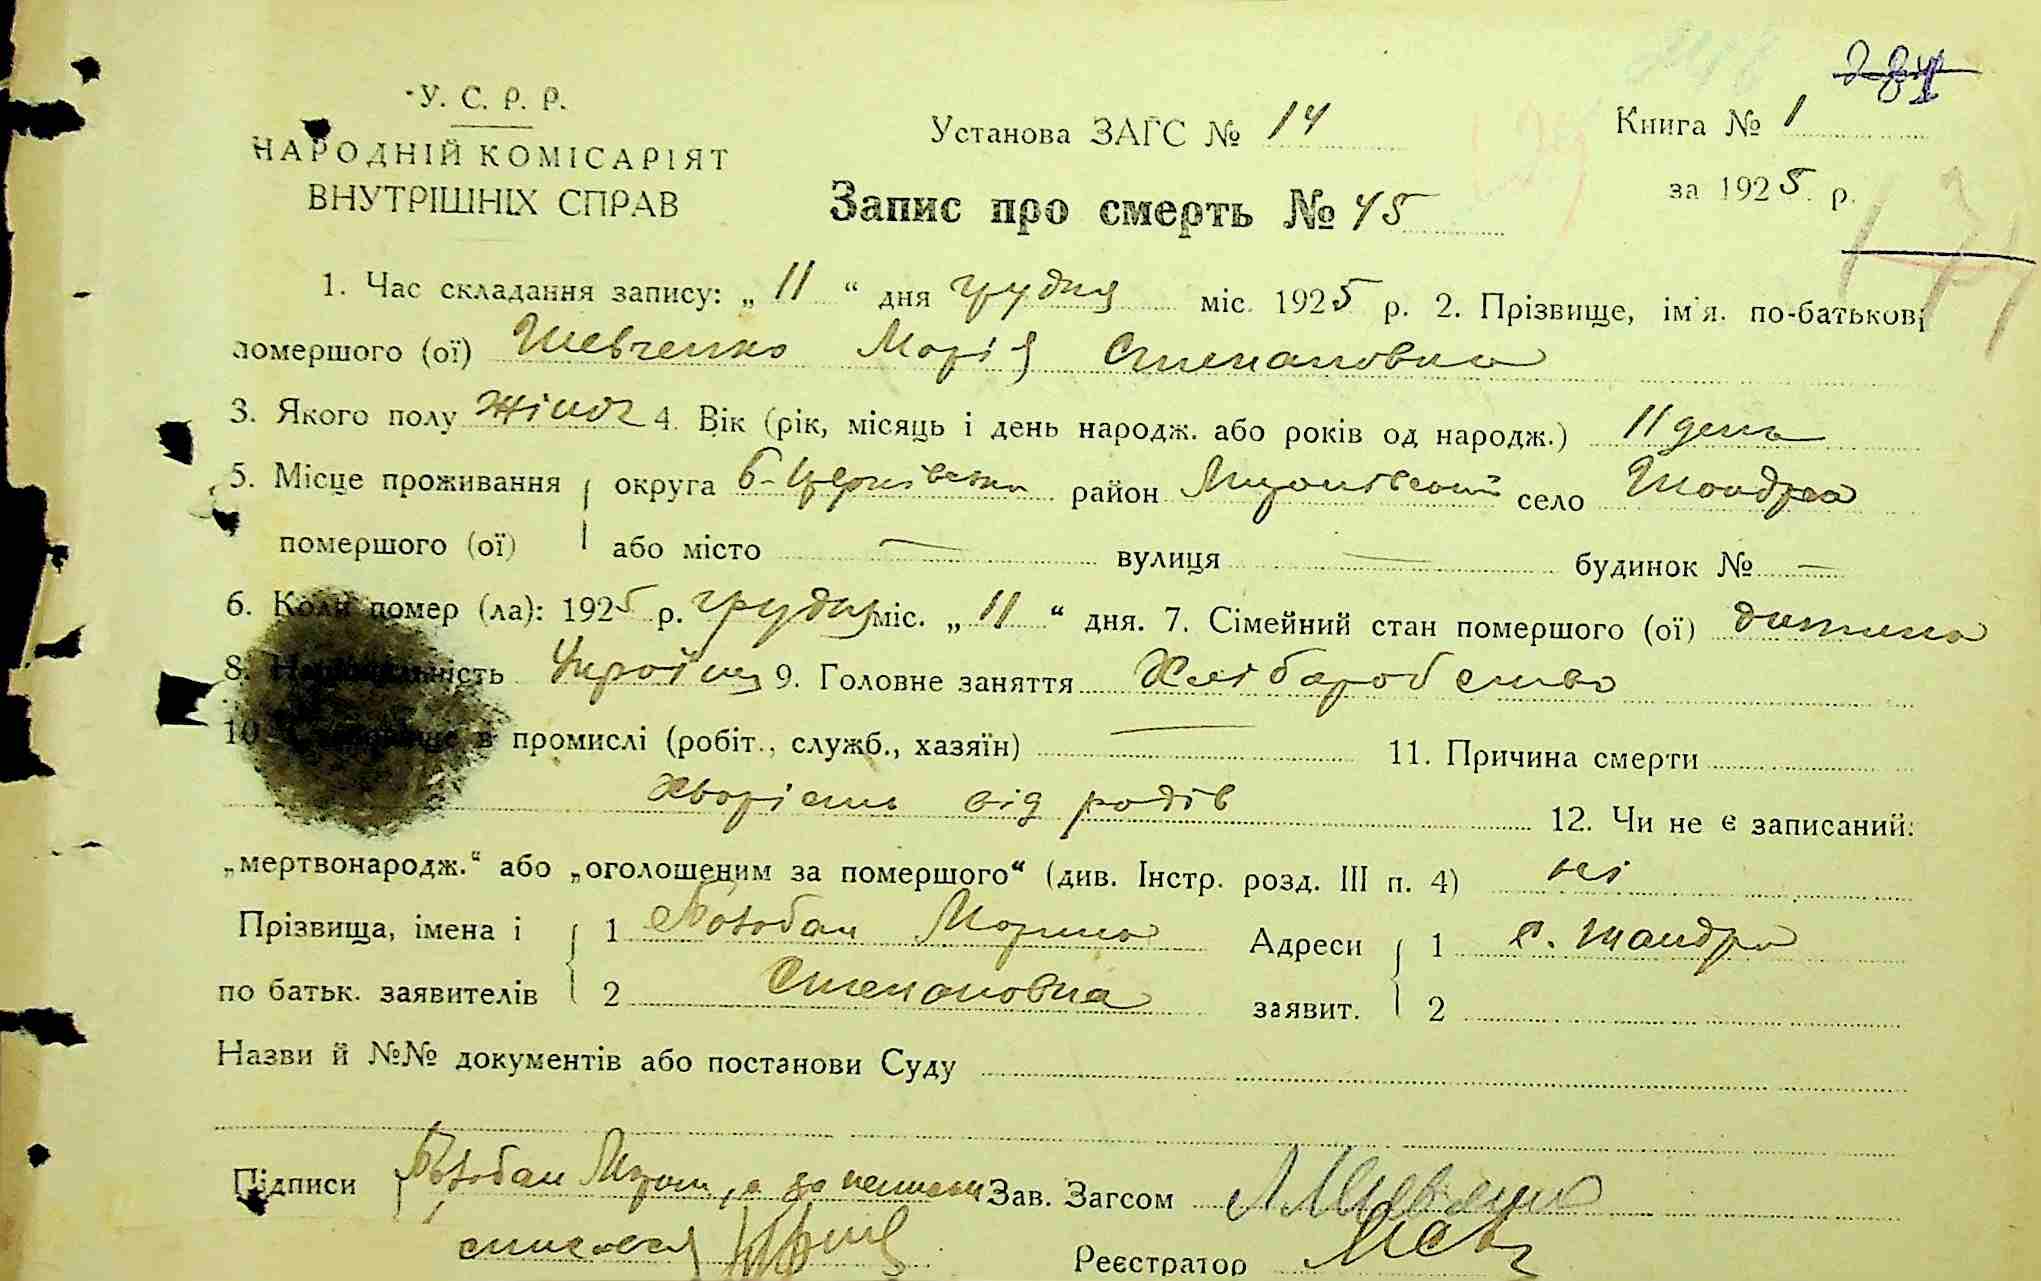 284
У. С. Р. Р.
НАРОДНІЙ КОМІСАРІЯТ
ВНУТРІШНІХ СПРАВ
Установа ЗАГС № 14
Книга № 1
за 1925 р.
Запис про смерть № 45
1. Час складання запису: „ 11 “ дня грудня міс. 1925 р. 2. Прізвище, ім'я. по-батькові
помершого (ої) Шевченко Марія Степановна
3. Якого полу жіноч 4. Вік (рік, місяць і день народж. або років од народж.) 11 день
5. Місце проживання округа Б-Церківська район Миронівський село Шандра
помершого (ої) або місто — вулиця — будинок № —
6. Коли помер (ла): 1925 р. грудня міс. „ 11 “ дня. 7. Сімейний стан помершого (ої) дитина
8. Національність Україн 9. Головне заняття Хлібаробство
10 в промислі (робіт., служб., хазяїн) — 11. Причина смерти
Хворість від родів 12. Чи не є записаний:
„мертвонародж.“ або „оголошеним за помершого“ (див. Інстр. розд. III п. 4) ні
Прізвища, імена і 1 Марина Адреси 1 с. Шандра
по батьк. заявителів 2 Степановна заявит. 2
Назви й №№ документів або постанови Суду
Підписи Зав. Загсом
Реєстратор